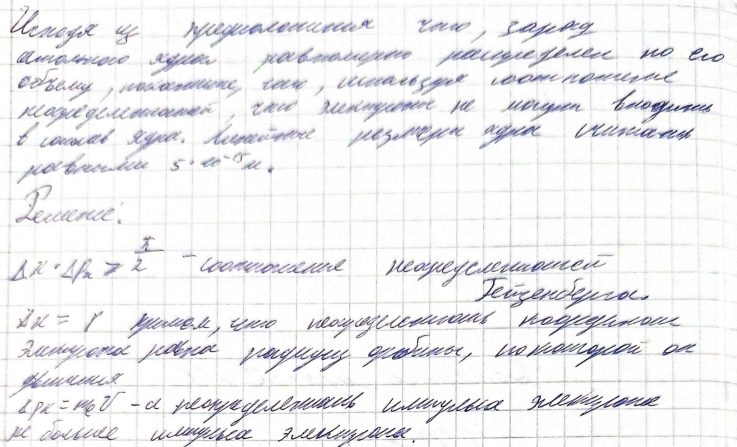 Исходя из предположения что, заряд
атомного ядра равномерно распределен по его
объему, покажите, что, используя соотношение
неопределенностей, что электроны не могут входить
в состав ядра. Линейные размеры ядра считать
равными 5·10⁻¹⁵ м.
Решение:
Δx · Δpx ≥ ħ/2 – соотношение неопределенностей
Гейзенберга.
Δx = r примем, что неопределенность координат
электрона равна радиусу орбиты, по которой он
движется
Δpx = m₀υ – а неопределенность импульса электрона
не больше импульса электрона.